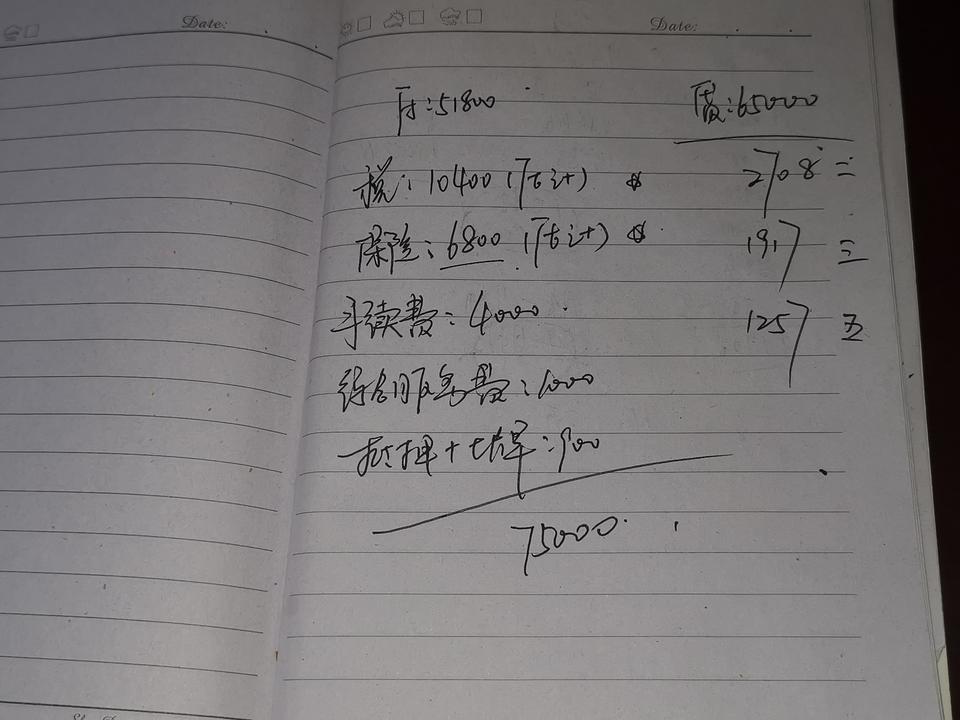 Date:
Date:
首付:51800
贷:65000
税:10400(预估计) 2708 二
保险:6800(预估计) 1917 三
手续费:4000 1257 五
综合服务费:1000
抵押+上牌:900
75000